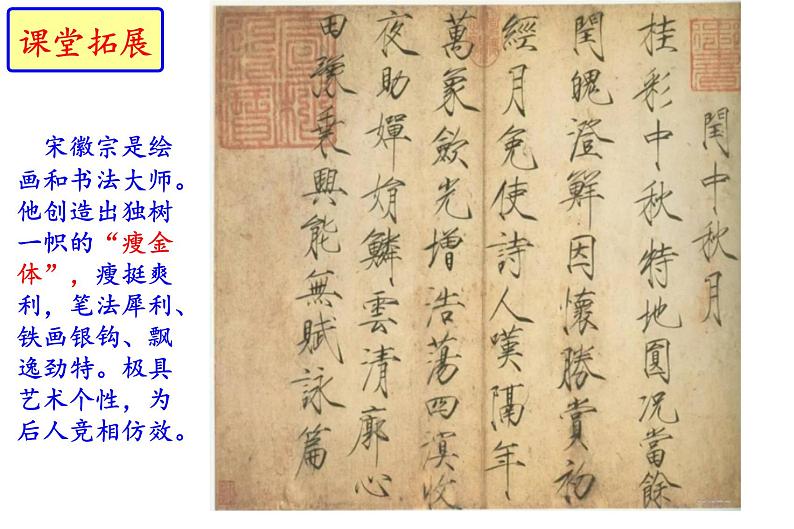 课堂拓展
宋徽宗是绘
画和书法大师。
他创造出独树
一帜的“瘦金
体”，瘦挺爽
利，笔法犀利、
铁画银钩、飘
逸劲特。极具
艺术个性，为
后人竞相仿效。
閏中秋月
桂彩中秋特地圓況當餘
閏魄澄鮮因懷勝賞初
經月免使詩人嘆隔年
萬象歛光增浩蕩四溟收
夜助嬋娟鱗雲清廓心
田豫乗興能無賦詠篇